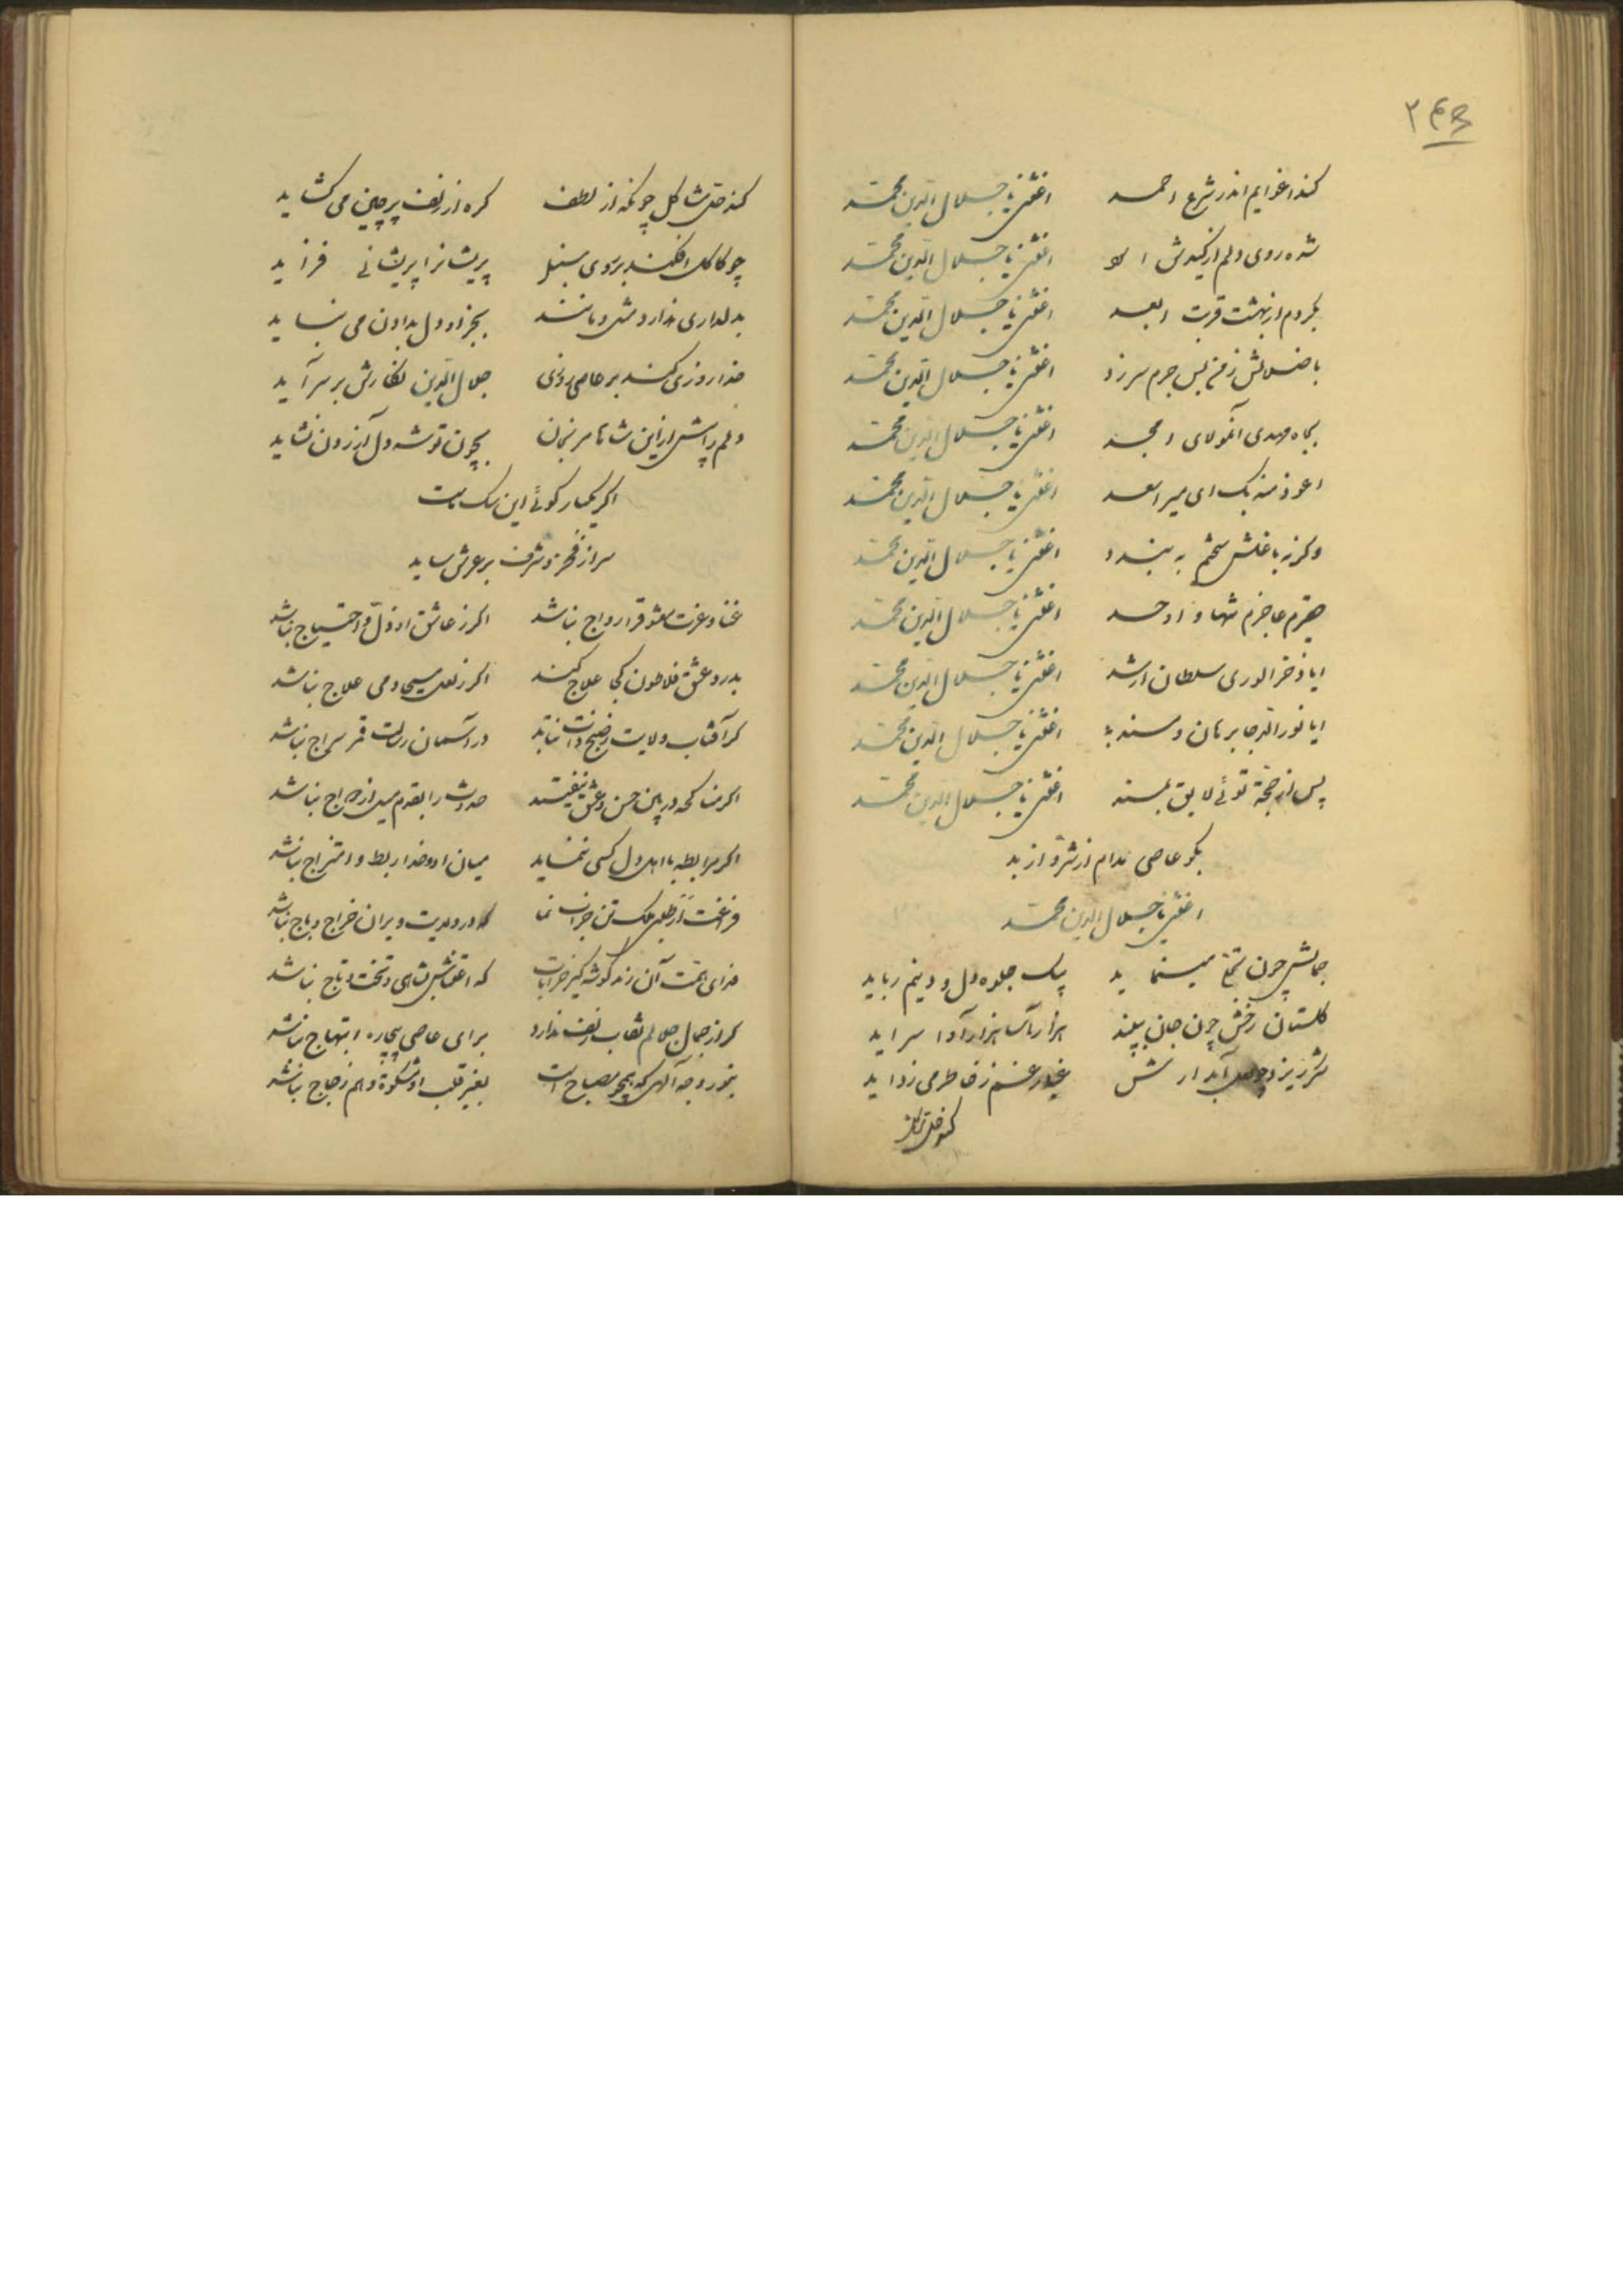 ۲۴۵
کند اغوایم اندر شرع احمد اغثنی یا جلال الدین محمد
شده روی دلم از کیدش اسود اغثنی یا جلال الدین محمد
بکردم از بهشت قربت ابعد اغثنی یا جلال الدین محمد
باضلالش ز من بس جرم سر زد اغثنی یا جلال الدین محمد
بجاه مهدی آنمولای امجد اغثنی یا جلال الدین محمد
اعوذ منه بک ای میر اسعد اغثنی یا جلال الدین محمد
وگرنه باغلش سختم به بندد اغثنی یا جلال الدین محمد
حقیرم عاجزم شها و اوحد اغثنی یا جلال الدین محمد
ایا فخر الوری سلطان ارشد اغثنی یا جلال الدین محمد
ایا نور الدجا برهان و مسند اغثنی یا جلال الدین محمد
پس از حجة توئی لایق بمسند اغثنی یا جلال الدین محمد
بگو عاصی مدام از شر او از بد
اغثنی یا جلال الدین محمد
جمالش چون تجلی مینماید بیک جلوه دل و دینم رباید
گلستان رخش چون جان ببیند هزار آسا هزار آوا سراید
شکر ریزد چو لعل آبدارش غبار غم ز خاطر می زداید
کند حل
کند حل مشاکل چونکه از لطف گره از زلف پرچین می گشاید
چو کاکل افکند بر روی سنبل پریشانرا پریشانی فزاید
بدلداری ندارد مثل و مانند بجز او دل بدادن می نباید
خدا روزی کند بر عاصی روزی جلال الدین نگارش بر سر آید
دلم را بیش ازین شاها مرنجان بچون تو شه دل آزردن نشاید
اگر یکبار گوئی این سگ ماست
سر از فخر و شرف بر عرش ساید
غنا و عزت معشوق را رواج نباشد اگر ز عاشق او ذل و احتیاج نباشد
بدرد عشق فلاطون کجا علاج کند اگر ز لعل مسیحا دمی علاج نباشد
گر آفتاب ولایت ز صبح ذات نتابد در آسمان رسالت قمر سراج نباشد
اگر مناکحه در بین حسن و عشق نیفتد حدوث را بقدم میل ازدواج نباشد
اگر مرابطه با اهل دل کسی ننماید میان او و خدا ربط و امتزاج نباشد
فراغت از طلب ملک تن خراب نما که در ولایت ویران خراج و باج نباشد
فدای همت آن رند گوشه گیر خرابات که اعتناش بشاهی و تخت و تاج نباشد
گر از جمال جلالم نقاب زلف ندارد برای عاصی بیچاره ابتهاج نباشد
بنور وجه آلهی که همچو مصباح است بغیر قلب او مشکوة و هم زجاج نباشد